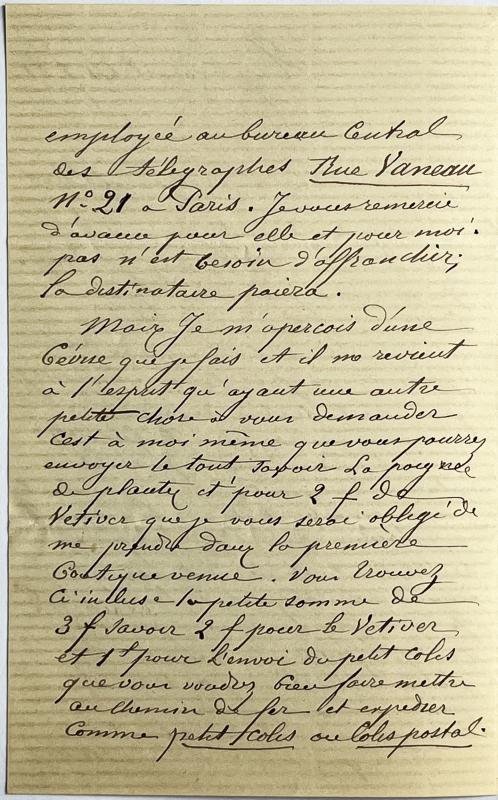 employée au bureau Central
des télégraphes Rue Vaneau
N° 21 à Paris. Je vous remercie
d'avance pour elle et pour moi.
pas n'est besoin d'affranchir;
la distinataire paiera.
Mais Je m'aperçois d'une
que je fais et il me revient
à l'esprit qu'ayant une autre
petite chose à vous demander
c'est à moi même que vous pourrez
envoyer le tout savoir La poignée
de plantes et pour 2 f de
Vetiver que je vous serai obligé de
me prendre dans la première
boutique venue. Vous trouvez
Ci incluse la petite somme de
3 f savoir 2 f pour le Vetiver
et 1 f pour l'envoi du petit colis
que vous voudrez bien faire mettre
au chemin de fer et expedier
Comme petit colis ou Colis postal.